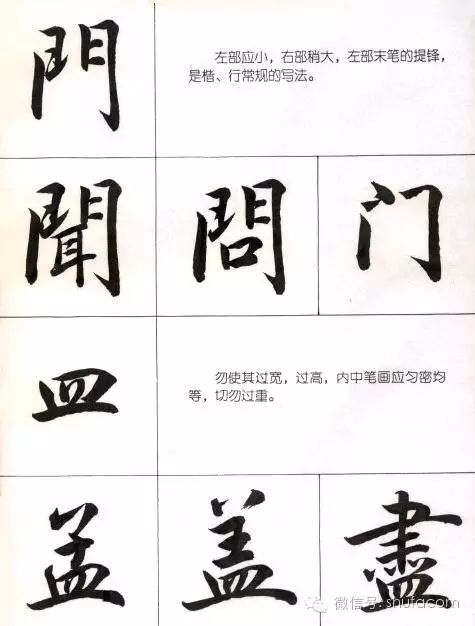 門
左部应小，右部稍大，左部末笔的提锋，
是楷、行常规的写法。
聞 問 门
皿
勿使其过宽，过高，内中笔画应匀密均
等，切勿过重。
孟 盖 盡
微信号: shufacom